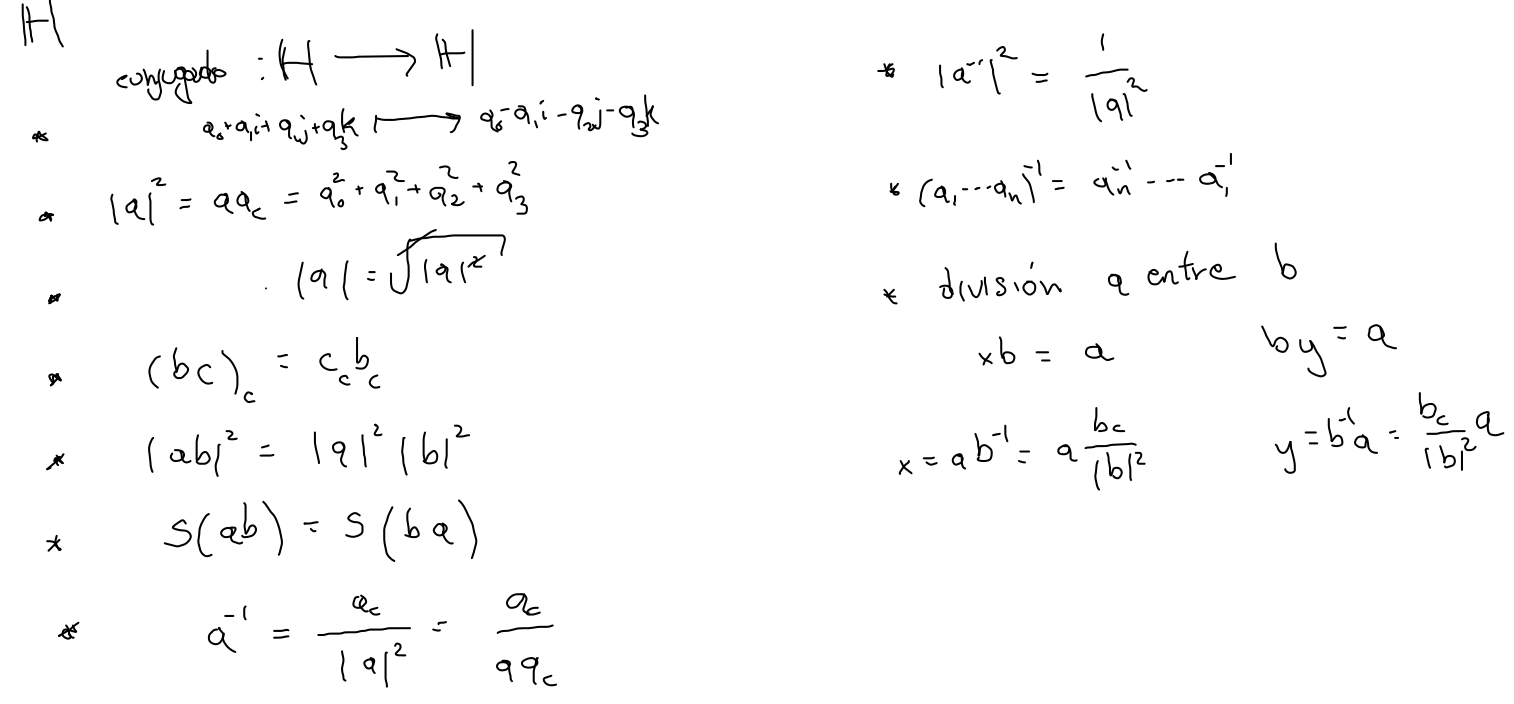 ℍ
conjugado : ℍ ⟶ ℍ
* a₀+a₁i+a₂j+a₃k ⟼ a₀-a₁i-a₂j-a₃k
* |a|² = aa_c = a₀² + a₁² + a₂² + a₃²
* |a| = √|a|²
* (bc)_c = c_c b_c
* |ab|² = |a|² |b|²
* S(ab) = S(ba)
* a⁻¹ = a_c / |a|² = a_c / aa_c
* |a⁻¹|² = 1 / |a|²
* (a₁ ... aₙ)⁻¹ = aₙ⁻¹ ... a₁⁻¹
* división a entre b
xb = a by = a
x = ab⁻¹ = a b_c / |b|² y = b⁻¹a = b_c / |b|² a